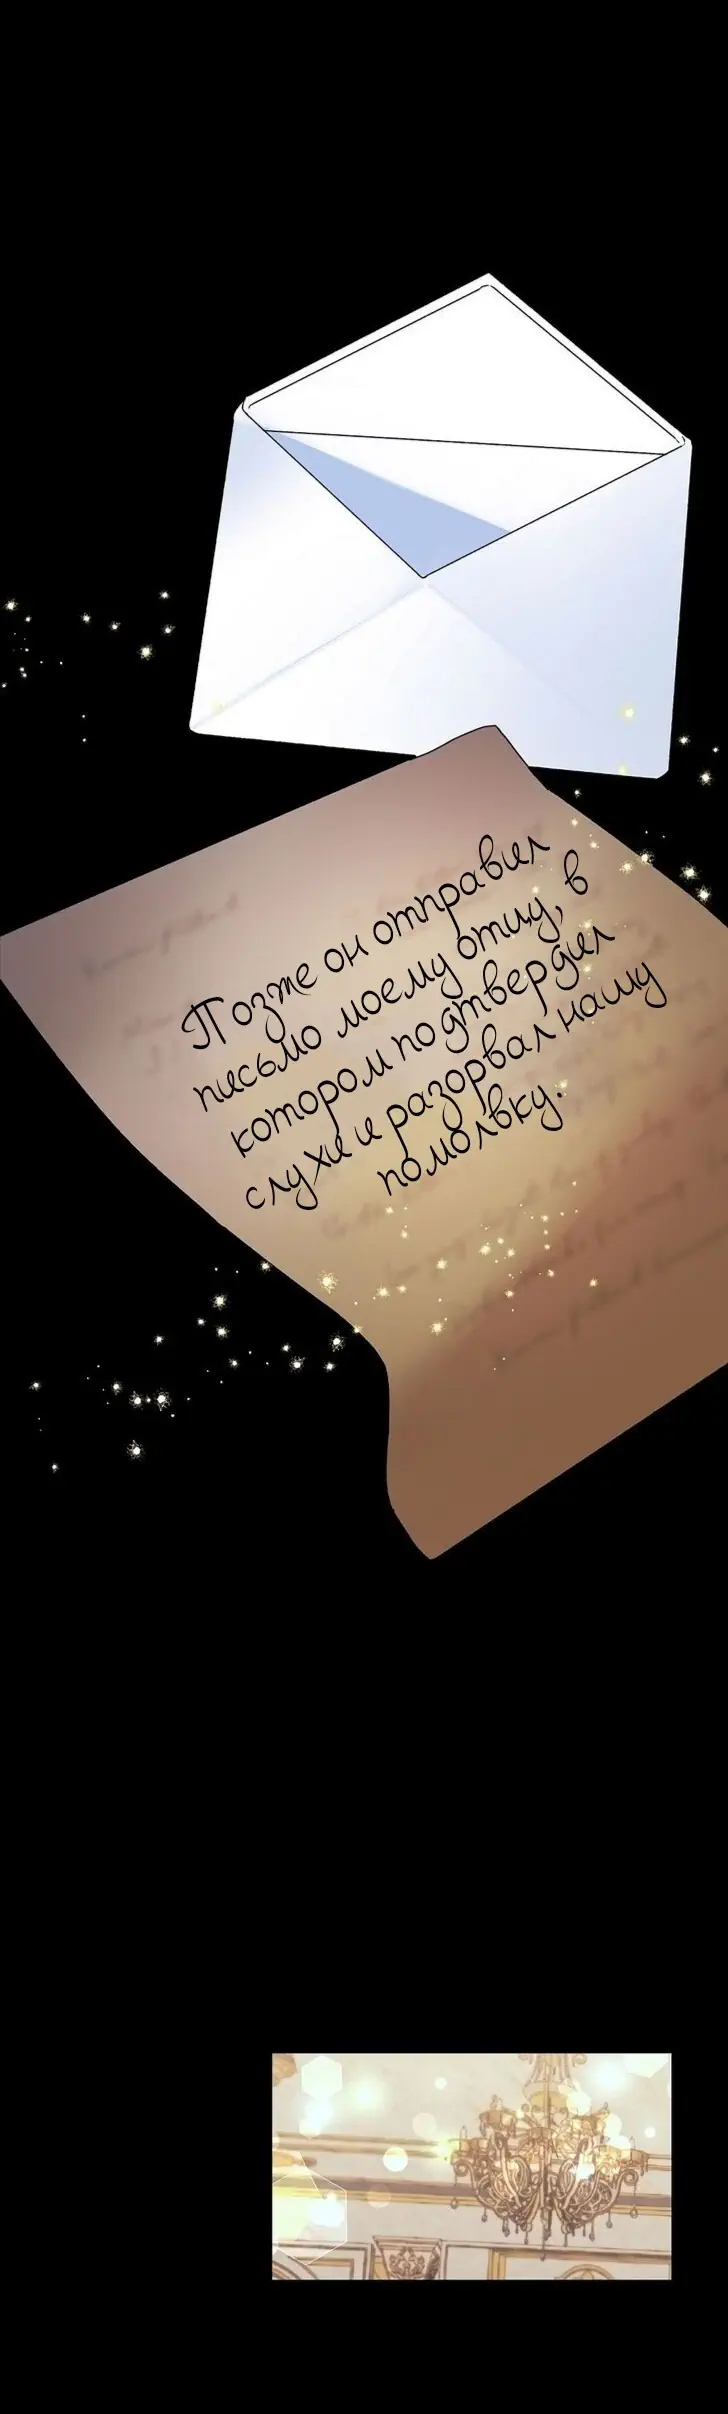 Позже он отправил
письмо моему отцу, в
котором подтвердил
слухи и разорвал нашу
помолвку.